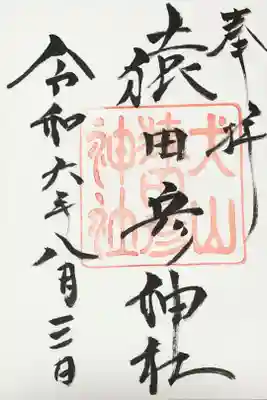 奉拝
猿田彦神社
令和六年八月三日
犬山
猿田彦
神社